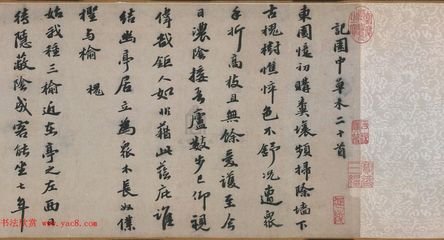 記園中草木二十首
東園憶初購糞壤頻掃除墻下
古槐樹憔悴色不舒況遭眾
手折高枝且無餘愛護至今
日濃陰接吾廬數步已仰視
偉哉鉅人如非藉此蔭庇誰
結幽亭居立為眾木長奴僕
檉與榆 槐
始我種三榆近在亭之左西日
待隱蔽陰成客能坐七年
书法欣赏 www.yac8.com